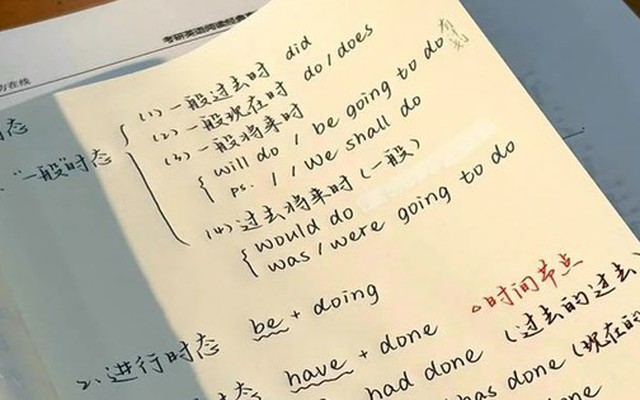 考研英语阅读经
在线
态
(1) 一般过去时 did
(2) 一般现在时 do/does
(3) 一般将来时
will do / be going to do 有计划
ps. I / we shall do
"一般"时态
(4) 过去将来时(一般)
would do
was/were going to do
2、进行时态 be + doing
时间节点
态 have + done
had done (过去的过去)
has done (现在的
done